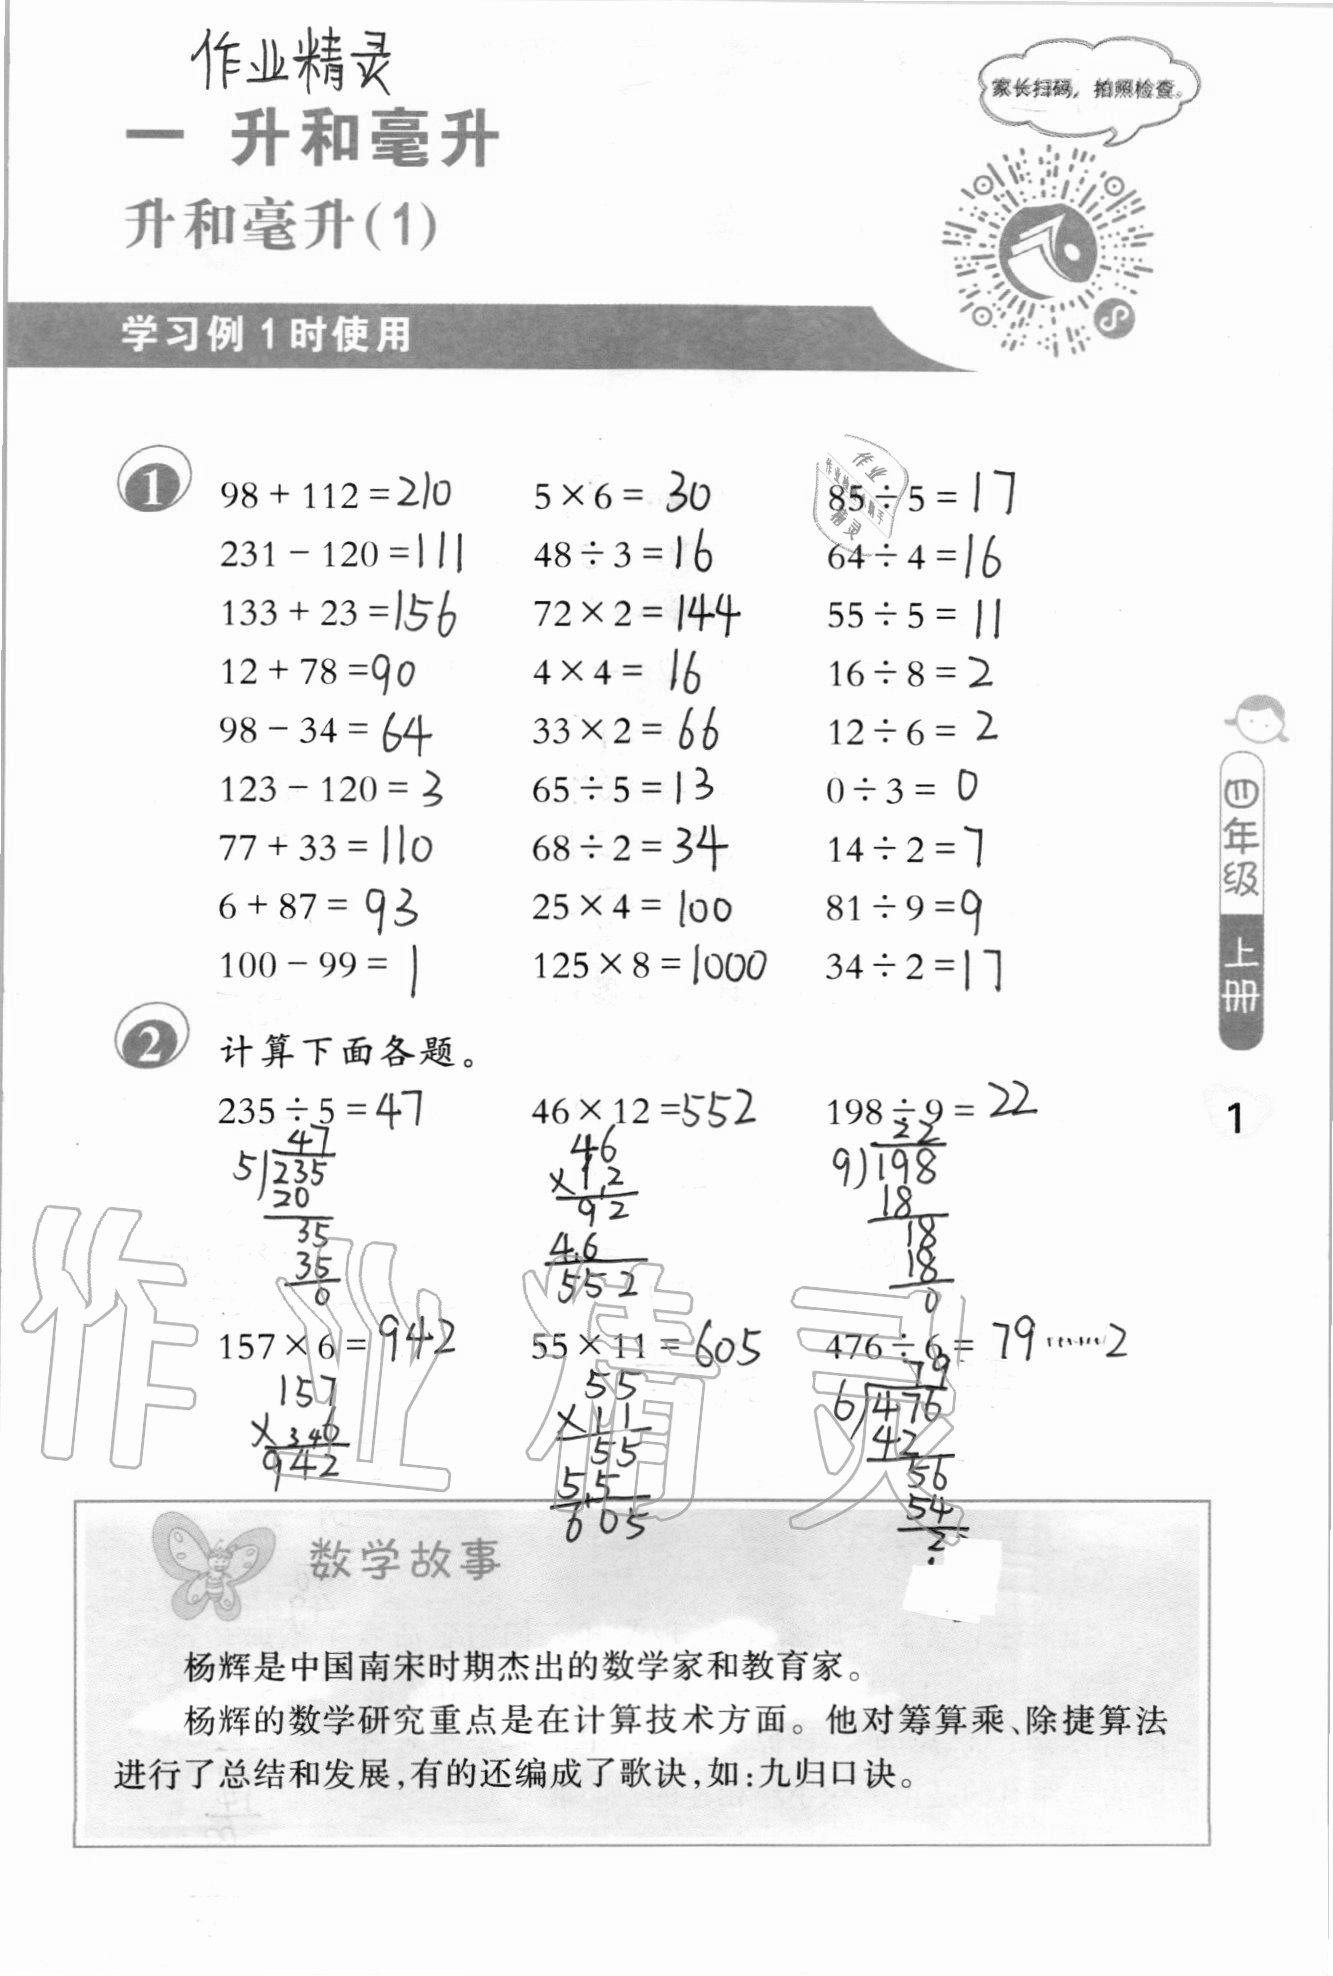 作业精灵
家长扫码，拍照检查。
一 升和毫升
升和毫升(1)
学习例 1 时使用
1
98 + 112 = 210 5 × 6 = 30 85 ÷ 5 = 17
231 − 120 = 111 48 ÷ 3 = 16 64 ÷ 4 = 16
133 + 23 = 156 72 × 2 = 144 55 ÷ 5 = 11
12 + 78 = 90 4 × 4 = 16 16 ÷ 8 = 2
98 − 34 = 64 33 × 2 = 66 12 ÷ 6 = 2
123 − 120 = 3 65 ÷ 5 = 13 0 ÷ 3 = 0
77 + 33 = 110 68 ÷ 2 = 34 14 ÷ 2 = 7
6 + 87 = 93 25 × 4 = 100 81 ÷ 9 = 9
100 − 99 = 1 125 × 8 = 1000 34 ÷ 2 = 17
2 计算下面各题。
235 ÷ 5 = 47 46 × 12 = 552 198 ÷ 9 = 22
47 46 22
5)235 ×12 9)198
20 92 18
35 46 18
35 552 18
0 0
157 × 6 = 942 55 × 11 = 605 476 ÷ 6 = 79……2
157 55 79
× 346 ×11 6)476
942 55 42
55 56
605 54
2
作业精灵
四年级 上册
1
数学故事
杨辉是中国南宋时期杰出的数学家和教育家。
杨辉的数学研究重点是在计算技术方面。他对筹算乘、除捷算法
进行了总结和发展,有的还编成了歌诀,如:九归口诀。